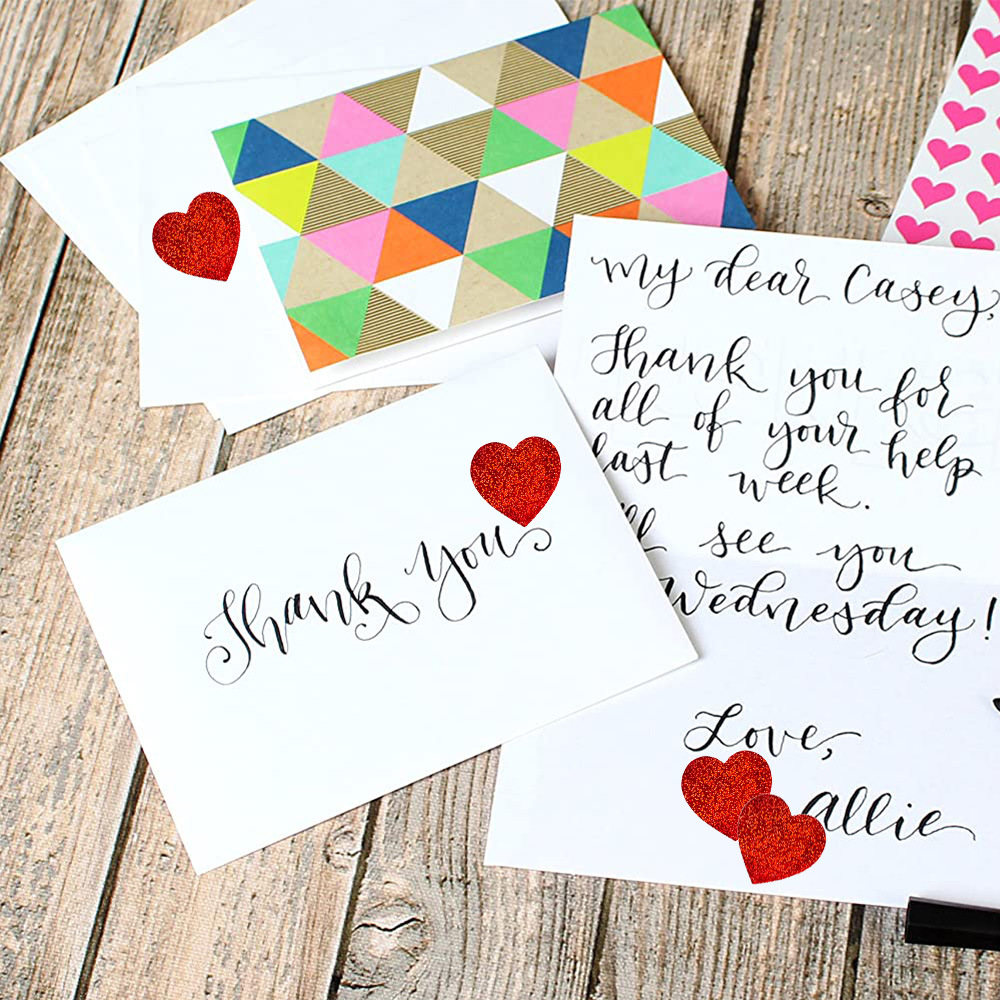 Thank You
My dear Casey,
Thank you for
all of your help
last week.
see you
Wednesday!
Love,
Allie